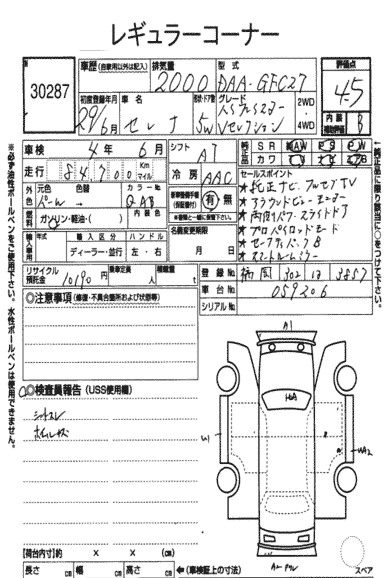 レギュラーコーナー
No. 30287
車歴 (自家用以外は記入) 排気量 2000 型式 DAA-GFC27
評価点 4.5
初度登録年月 29/6月 車名 セレナ 形状・ドア数 5W グレード Vセレクション 2WD・4WD
内装補助評価 B
車検 4年6月 シフト AT
純正品 SR AW PS PW カワ
走行 84,700 Km マイル 冷房 AAC
セールスポイント
外色 元色 パール 色替 カラーNo. QAB
★純正ナビ、フルセグTV
燃料 ガソリン・軽油・( ) 内装色
新車整備手帳(保証書付) 有・無
★アラウンドビューモニター
★両側パワースライドドア
輸入車用 年式 輸入区分 ハンドル
ディーラー・並行 左・右
名義変更期限 月 日
★プロパイロットモード
★スマートルームミラー
リサイクル預託金 10190円 乗車定員 人 積載量 t
登録No.
車台No. 059206
シリアルNo.
◎注意事項 (修復・不具合箇所および状態等)
◎検査員報告 (USS使用欄)
シートスレ
ホイールキズ
A1
U1
【荷台内寸】約 × × (cm)
長さ cm 幅 cm 高さ cm ←(車検証上の寸法)
スペア
★必ず油性ボールペンをご使用下さい。水性ボールペンは使用できません。
★純正品に限り該当に○をつけて下さい。